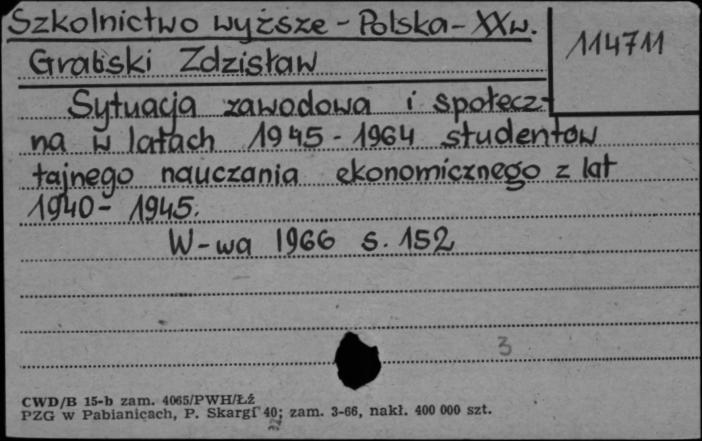 Szkolnictwo wyższe - Polska - XX w.
114711
Grabski Zdzisław
Sytuacja zawodowa i społecz-
na w latach 1945 - 1964 studentów
tajnego nauczania ekonomicznego z lat
1940 - 1945.
W-wa 1966 s. 152
3
CWD/B 15-b zam. 4065/PWH/Łź
PZG w Pabianicach, P. Skargi 40; zam. 3-66, nakł. 400 000 szt.